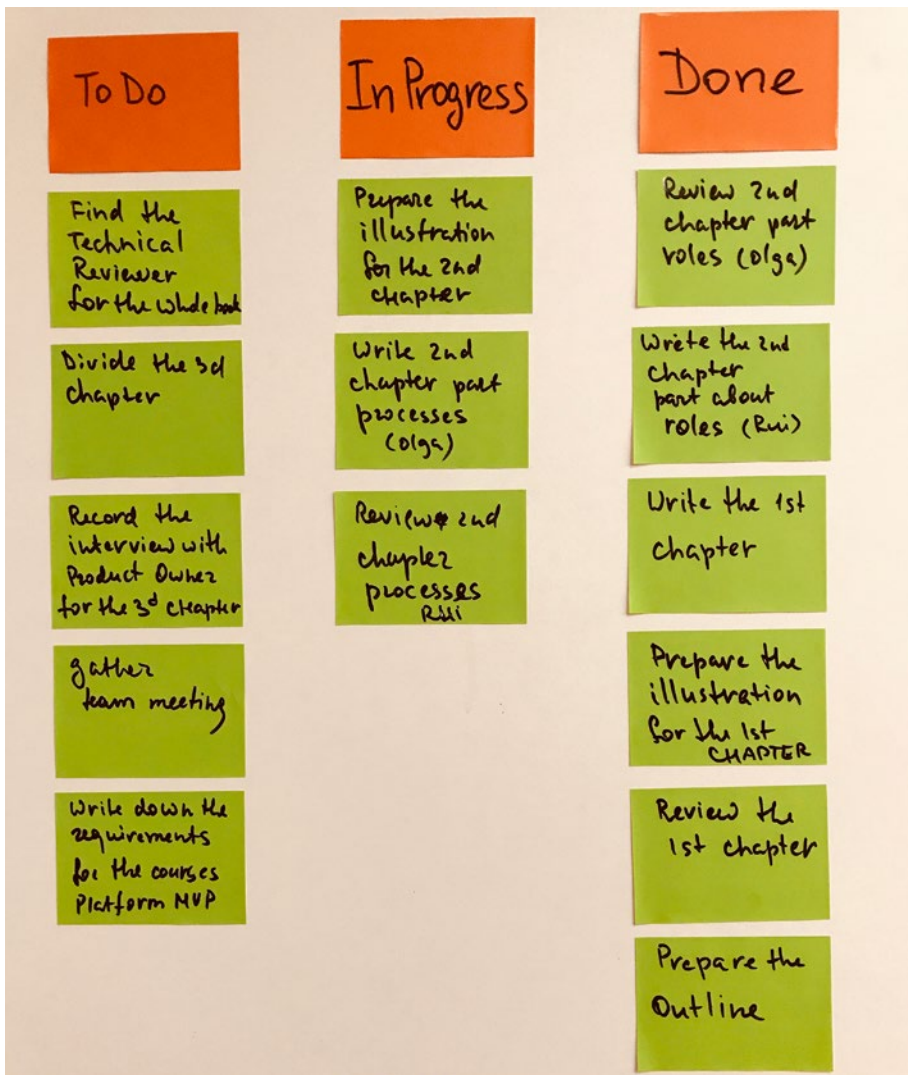 To Do
Find the
Technical
Reviewer
for the whole book
Divide the 3d
chapter
Record the
interview with
Product Owner
for the 3d chapter
gather
team meeting
Write down the
requirements
for the courses
Platform MVP
In Progress
Prepare the
illustration
for the 2nd
chapter
Write 2nd
chapter part
processes
(Olga)
Review 2nd
chapter
processes
Rui
Done
Review 2nd
chapter part
roles (Olga)
Write the 2nd
chapter
part about
roles (Rui)
Write the 1st
chapter
Prepare the
illustration
for the 1st
CHAPTER
Review the
1st chapter
Prepare the
Outline